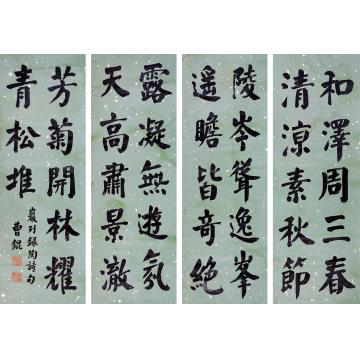 和澤周三春
清涼素秋節
陵岑聳逸峯
遥瞻皆奇絕
露凝無遊氛
天高肅景澈
芳菊開林耀
青松堆
巖列錄陶詩句
曹錕